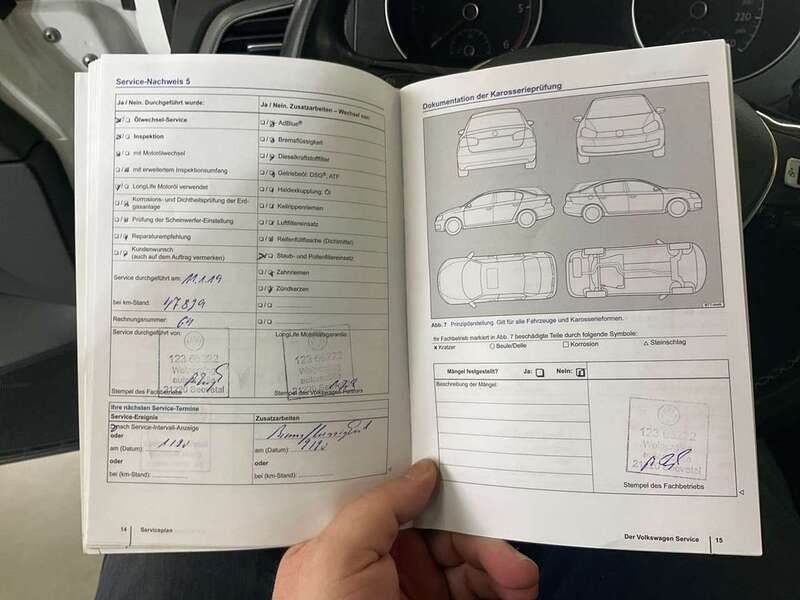 Service-Nachweis 5
Ja / Nein. Durchgeführt wurde:
Ölwechsel-Service
Inspektion
mit Motorölwechsel
mit erweitertem Inspektionsumfang
LongLife Motoröl verwendet
Korrosions- und Dichtheitsprüfung der Erd-
gasanlage
Prüfung der Scheinwerfer-Einstellung
Reparaturempfehlung
Kundenwunsch
(auch auf dem Auftrag vermerken)
Service durchgeführt am: 11.1.19
bei km-Stand: 47839
Rechnungsnummer: 64
Service durchgeführt von:
123 66222
21220 Seevetal
Stempel des Fachbetriebs
Ja / Nein. Zusatzarbeiten – Wechsel von:
AdBlue®
Bremsflüssigkeit
Dieselkraftstofffilter
Getriebeöl: DSG®, ATF
Haldexkupplung: Öl
Keilrippenriemen
Luftfiltereinsatz
Reifenfüllflasche (Dichtmittel)
Staub- und Pollenfiltereinsatz
Zahnriemen
Zündkerzen
LongLife Mobilitätsgarantie
123 66222
21220 Seevetal
Stempel des Volkswagen Partners
Ihre nächsten Service-Termine
Service-Ereignis
nach Service-Intervall-Anzeige
oder
am (Datum):
oder
bei (km-Stand):
Zusatzarbeiten
Bremsflüssigkeit
am (Datum):
oder
bei (km-Stand):
14 Serviceplan
Dokumentation der Karosserieprüfung
Abb. 7 Prinzipdarstellung. Gilt für alle Fahrzeuge und Karosserieformen.
Ihr Fachbetrieb markiert in Abb. 7 beschädigte Teile durch folgende Symbole:
x Kratzer ○ Beule/Delle □ Korrosion △ Steinschlag
Mängel festgestellt? Ja: Nein:
Beschreibung der Mängel:
123 66222
21220 Seevetal
Stempel des Fachbetriebs
Der Volkswagen Service 15
5
6
220